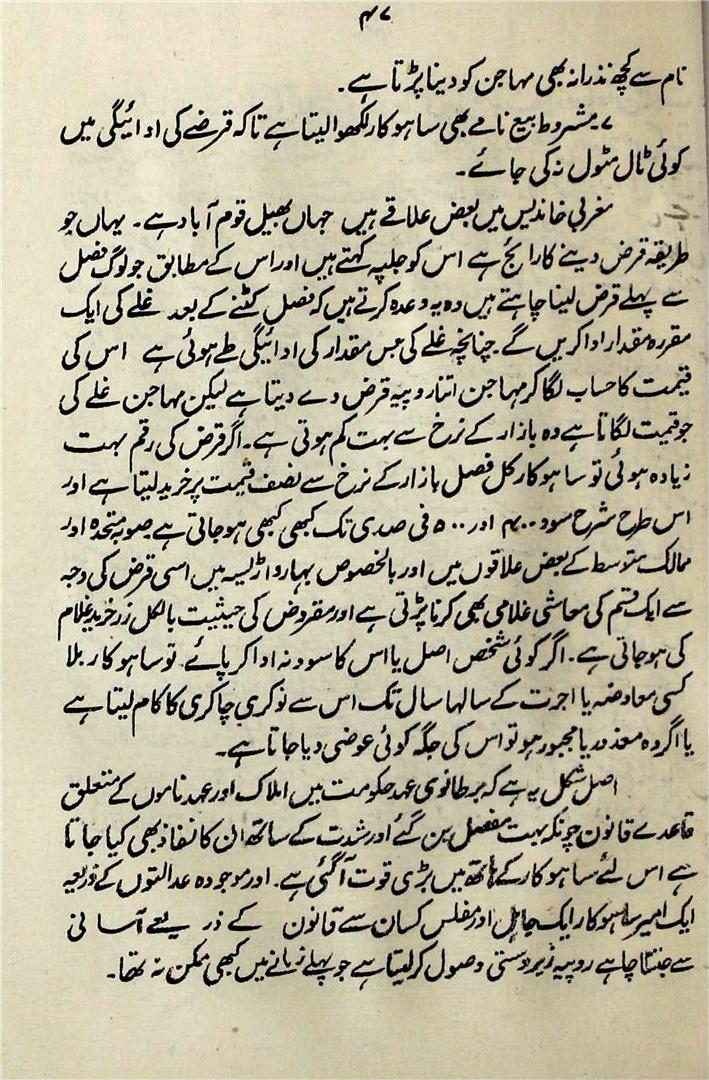 ۴۷
نام سے کچھ نذرانہ بھی مہاجن کو دینا پڑتا ہے۔
۷۔ مشروط بیع نامے بھی ساہوکار لکھوا لیتا ہے تاکہ قرضے کی ادائیگی میں
کوئی ٹال مٹول نہ کی جائے۔
مغربی خاندیس میں بعض علاقے ہیں جہاں بھیل قوم آباد ہے۔ یہاں جو
طریقہ قرض دینے کا رائج ہے اس کو جلپہ کہتے ہیں اور اس کے مطابق جو لوگ فصل
سے پہلے قرض لینا چاہتے ہیں وہ یہ وعدہ کرتے ہیں کہ فصل کٹنے کے بعد غلے کی ایک
مقررہ مقدار ادا کریں گے۔ چنانچہ غلے کی جس مقدار کی ادائیگی طے ہوئی ہے اس کی
قیمت کا حساب لگا کر مہاجن اتنا روپیہ قرض دے دیتا ہے لیکن مہاجن غلے کی
جو قیمت لگاتا ہے وہ بازار کے نرخ سے بہت کم ہوتی ہے۔ اگر قرض کی رقم بہت
زیادہ ہوئی تو ساہوکار کل فصل بازار کے نرخ سے نصف قیمت پر خرید لیتا ہے اور
اس طرح شرح سود ۴۰۰ اور ۵۰۰ فی صدی تک کبھی کبھی ہو جاتی ہے۔ صوبہ متحدہ اور
ممالک متوسط کے بعض علاقوں میں اور بالخصوص بہار و اڑیسہ میں اسی قرض کی وجہ
سے ایک قسم کی معاشی غلامی بھی کرنا پڑتی ہے اور مقروض کی حیثیت بالکل زر خرید غلام
کی ہو جاتی ہے۔ اگر کوئی شخص اصل یا اس کا سود نہ ادا کر پائے۔ تو ساہوکار بلا
کسی معاوضہ یا اجرت کے سالہا سال تک اس سے نوکری چاکری کا کام لیتا ہے
یا اگر وہ معذور یا مجبور ہو تو اس کی جگہ کوئی عوضی دیا جاتا ہے۔
اصل شکل یہ ہے کہ برطانوی عہد حکومت میں املاک اور عہد ناموں کے متعلق
قاعدے قانون چونکہ بہت مفصل بن گئے اور شدت کے ساتھ ان کا نفاذ بھی کیا جاتا
ہے اس لئے ساہوکار کے ہاتھ میں بڑی قوت آگئی ہے۔ اور موجودہ عدالتوں کے ذریعہ
ایک امیر ساہوکار ایک جاہل اور مفلس کسان سے قانون کے ذریعے آسانی
سے جتنا چاہے روپیہ زبردستی وصول کر لیتا ہے جو پہلے زمانے میں کبھی ممکن نہ تھا۔